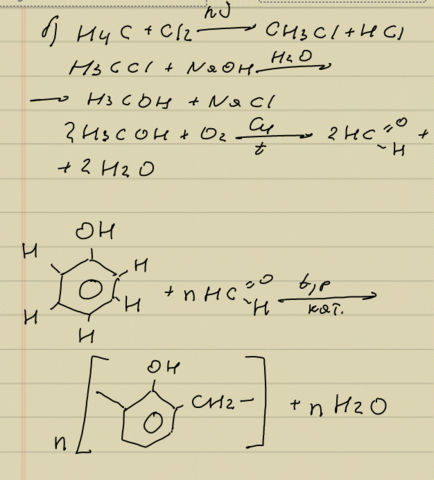 б) H4C + Cl2 hν CH3Cl + HCl
H3CCl + NaOH H2O
H3COH + NaCl
2H3COH + O2 Cu t 2HC =O -H +
+ 2H2O
OH
H H
H H
H
+ n HC =O -H t,p кат.
OH
n [ CH2- ] + n H2O